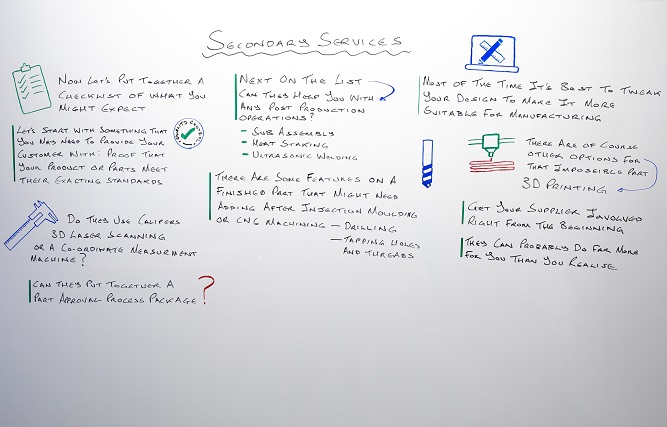 Secondary Services
Now Let's Put Together A
Checklist Of What You
Might Expect
Let's Start With Something That
You May Need To Provide Your
Customer With: Proof That
Your Product Or Parts Meet
Their Exacting Standards
Quality Control
Do They Use Calipers
3D Laser Scanning
Or A Co-ordinate Measurment
Machine?
Can They Put Together A
Part Approval Process Package?
Next On The List
Can They Help You With
Any Post Production
Operations?
- Sub Assembly
- Heat Staking
- Ultrasonic Welding
There Are Some Features On A
Finished Part That Might Need
Adding After Injection Moulding
Or CNC Machining - Drilling
- Tapping Holes
And Threads
Most Of The Time It's Best To Tweak
Your Design To Make It More
Suitable For Manufacturing
There Are Of Course
Other Options For
That Impossible Part
3D Printing
Get Your Supplier Involved
Right From The Beginning
They Can Probably Do Far More
For You Than You Realise